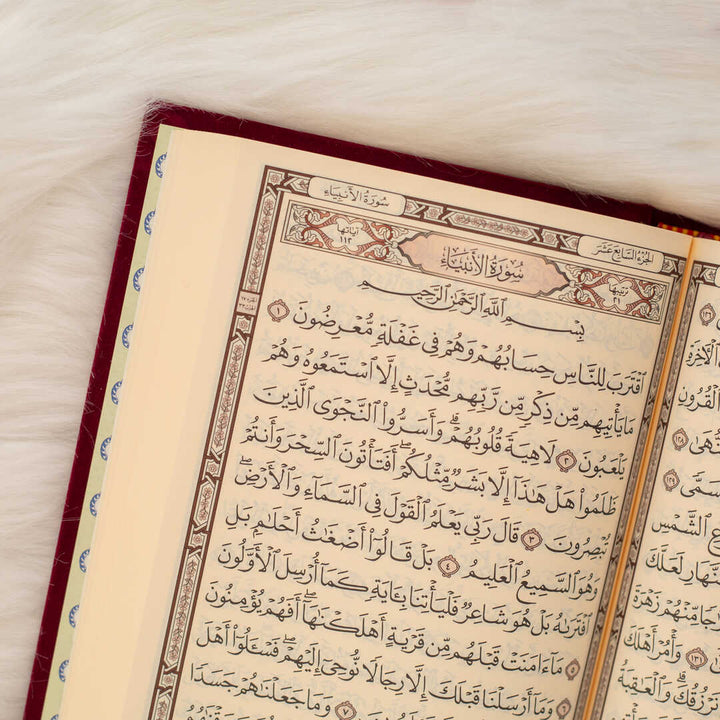 سُورَةُ الأَنْبِيَاءِ
الجُزْءُ السَّابِعَ عَشَرَ
آياتها ١١٢
سُورَةُ الأَنْبِيَاءِ
ترتيبها ٢١
بِسْمِ ٱللَّهِ ٱلرَّحْمَٰنِ ٱلرَّحِيمِ
ٱقْتَرَبَ لِلنَّاسِ حِسَابُهُمْ وَهُمْ فِى غَفْلَةٍ مُّعْرِضُونَ ١
مَا يَأْتِيهِم مِّن ذِكْرٍ مِّن رَّبِّهِم مُّحْدَثٍ إِلَّا ٱسْتَمَعُوهُ وَهُمْ
يَلْعَبُونَ ٢ لَاهِيَةً قُلُوبُهُمْ ۗ وَأَسَرُّوا۟ ٱلنَّجْوَى ٱلَّذِينَ
ظَلَمُوا۟ هَلْ هَٰذَآ إِلَّا بَشَرٌ مِّثْلُكُمْ ۖ أَفَتَأْتُونَ ٱلسِّحْرَ وَأَنتُمْ
تُبْصِرُونَ ٣ قَالَ رَبِّى يَعْلَمُ ٱلْقَوْلَ فِى ٱلسَّمَآءِ وَٱلْأَرْضِ ۖ
وَهُوَ ٱلسَّمِيعُ ٱلْعَلِيمُ ٤ بَلْ قَالُوٓا۟ أَضْغَٰثُ أَحْلَٰمٍۭ بَلِ
ٱفْتَرَىٰهُ بَلْ هُوَ شَاعِرٌ فَلْيَأْتِنَا بِـَٔايَةٍ كَمَآ أُرْسِلَ ٱلْأَوَّلُونَ
٥ مَآ ءَامَنَتْ قَبْلَهُم مِّن قَرْيَةٍ أَهْلَكْنَٰهَآ ۖ أَفَهُمْ يُؤْمِنُونَ
٦ وَمَآ أَرْسَلْنَا قَبْلَكَ إِلَّا رِجَالًا نُّوحِىٓ إِلَيْهِمْ ۖ فَسْـَٔلُوٓا۟ أَهْلَ
٧ وَمَا جَعَلْنَٰهُمْ جَسَدًا
ٱلْـَٔاخِرَةِ
ٱلْقُرُونِ
١٢٨
١٢٩
ٱلشَّمْسِ
لَعَلَّكَ
زَهْرَةَ
١٣١ وَأْمُرْ أَهْلَكَ
نَرْزُقُكَ ۗ وَٱلْعَٰقِبَةُ